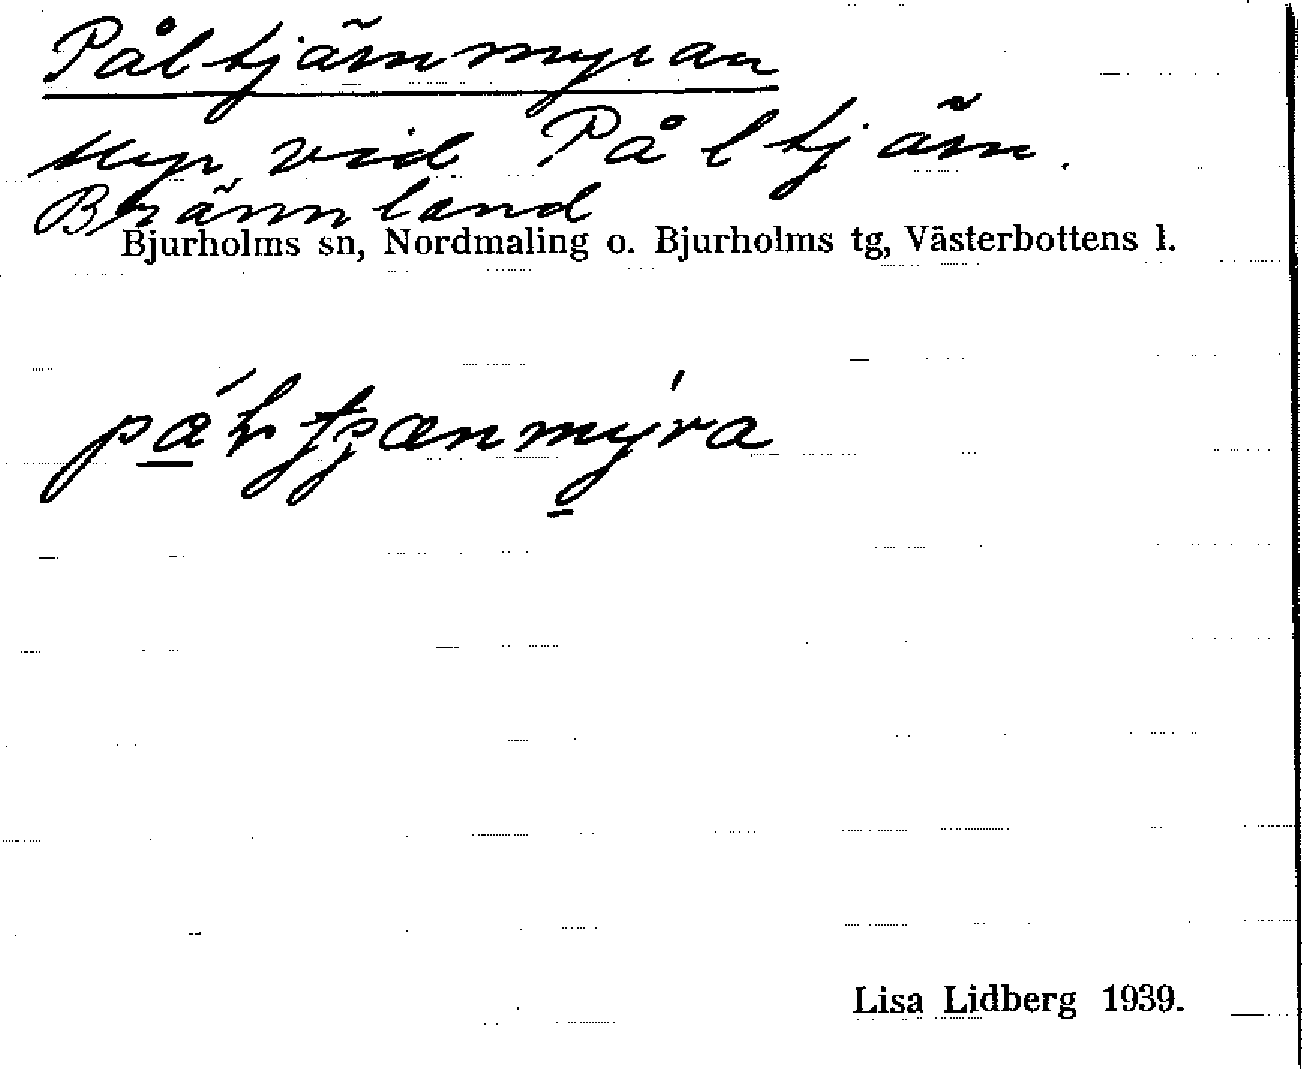 Påltjärnmyran
Myr vid Påltjärn.
Brännland
Bjurholms sn, Nordmaling o. Bjurholms tg, Västerbottens l.
Lisa Lidberg 1939.